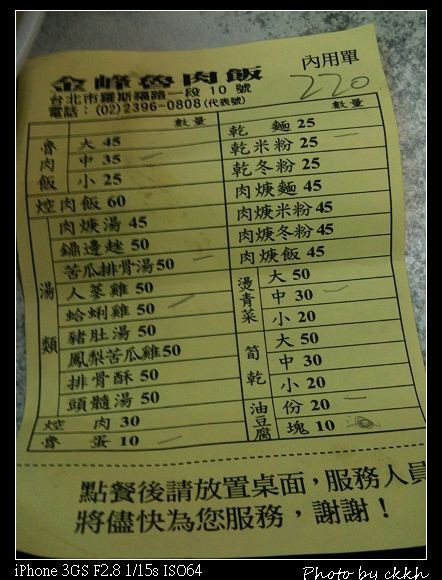 金峰魯肉飯 內用單
台北市羅斯福路一段10號 220
電話：(02)2396-0808(代表號)
數量 數量
魯肉飯 大 45
中 35
小 25
焢肉飯 60
湯類 肉焿湯 45
鼎邊趖 50
苦瓜排骨湯 50
人蔘雞 50
蛤蜊雞 50
豬肚湯 50
鳳梨苦瓜雞 50
排骨酥 50
頭髓湯 50
焢肉 30
魯蛋 10
乾麵 25
乾米粉 25
乾冬粉 25
肉焿麵 45
肉焿米粉 45
肉焿冬粉 45
肉焿飯 45
燙青菜 大 50
中 30
小 20
筍乾 大 50
中 30
小 20
油豆腐 份 20
塊 10
點餐後請放置桌面，服務人員
將儘快為您服務，謝謝！
iPhone 3GS F2.8 1/15s ISO64
Photo by ckkh